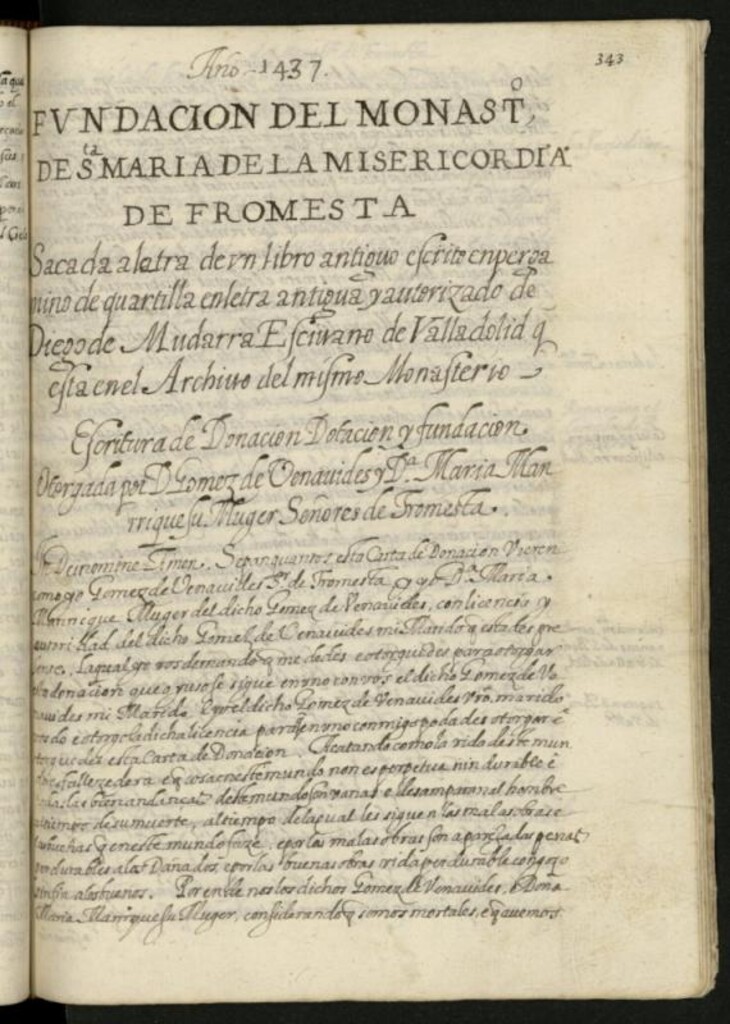 343
Año 1437.
FVNDACION DEL MONASTº,
DE Sta MARIA DE LA MISERICORDIA
DE FROMESTA
Sacada a letra de vn libro antiguo escrito en perga
mino de quartilla en letra antigua y autorizado de
Diego de Mudarra Escriuano de Valladolid q
esta en el Archiuo del mismo Monasterio
Escritura de Donacion Dotacion y fundacion
Otorgada por D Gomez de Venauides y Dª. Maria Man
rrique su Muger Señores de Fromesta.
In Dei nomine Amen. Sepan quantos esta Carta de Donacion Vieren
como yo Gomez de Venauides Sr. de Fromesta e yo Dª. Maria
Manrrique Muger del dicho Gomez de Venauides, con licencia y
autoridad del dicho Gomez de Venauides mi Marido q estades pre
sente. La qual yo vos demando q me dedes e otorguedes para otorgar
la donacion que yuso se sigue en vno con vos el dicho Gomez de Ve
nauides mi Marido. E yo el dicho Gomez de Venauides vro. marido
vos do e otorgo la dicha licencia para q en vno conmigo podades otorgar e
otorguedes esta Carta de Donacion. Acatando como la vida deste mun
do es fallezedera e q cosa en este mundo non es perpetua nin durable e
todas las bienandanças deste mundo son vanas e desamparan el hombre
al tiempo de su muerte, al tiempo de la qual les siguen las malas obras e
q en este mundo faze, e por las malas obras son aparejadas penas
perdurables a los Dañados, e por las buenas obras vida perdurable con gozo
sin fin a los buenos. Por ende nos los dichos Gomez de Venauides, e Dona
Maria Manrrique su Muger, considerando q somos mortales, e q auemos